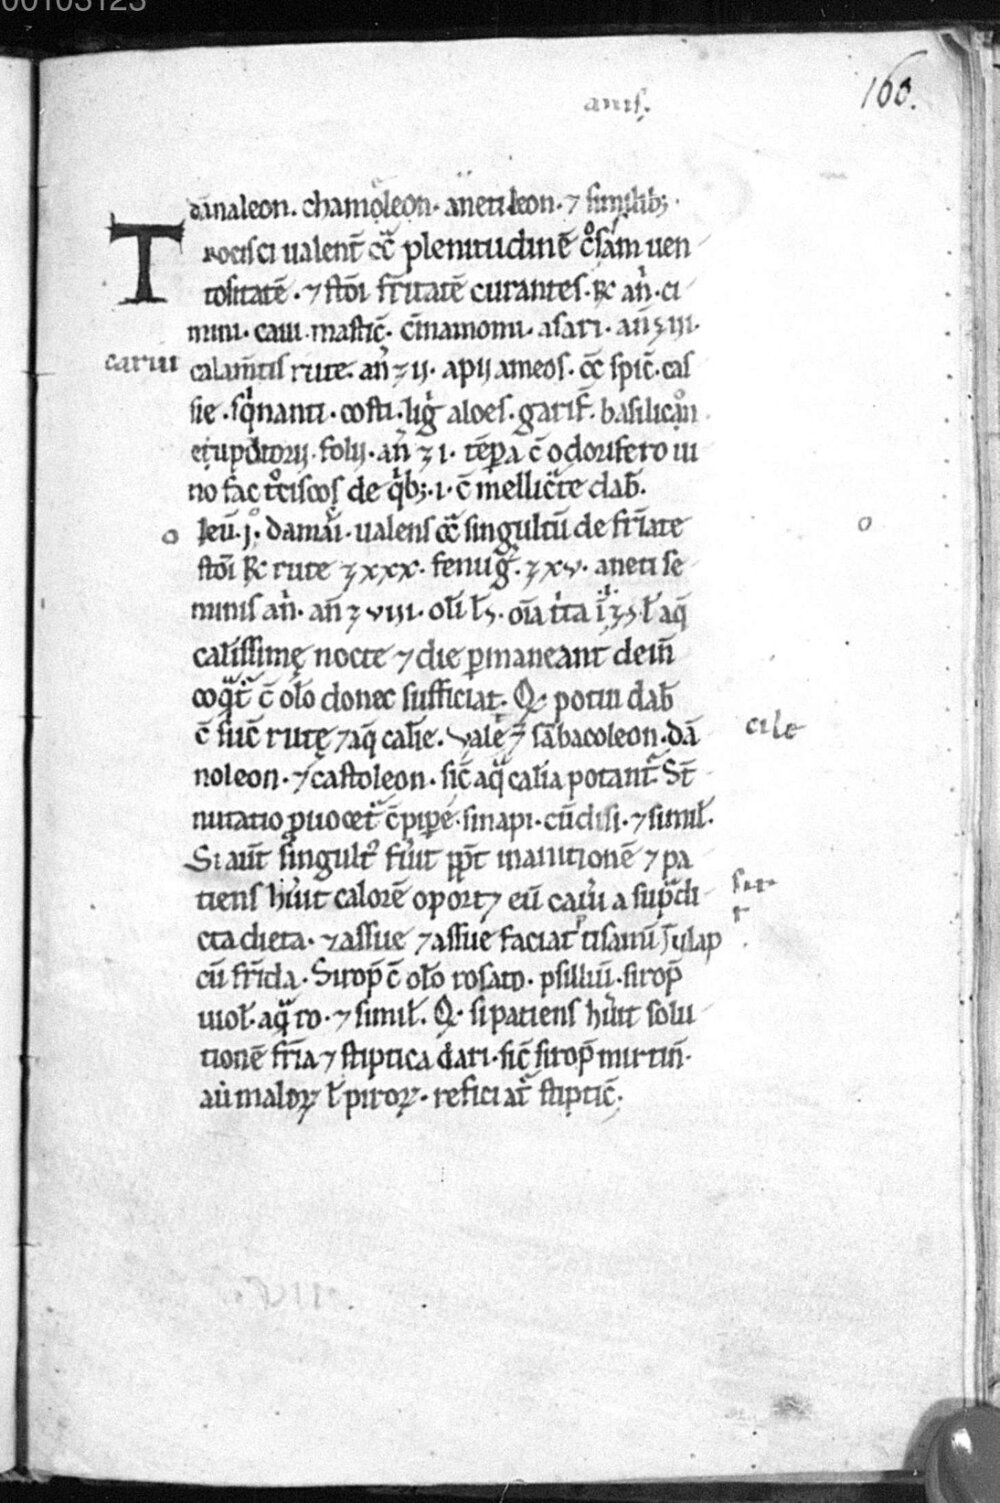 00103123
160.
anis.
dānaleon. chamoleon. anetileon. ⁊ similib;.
Trocisci ualent̄ plenitudinē uen
tositatē. ⁊ stōi frīitatē curantes. ℞ an̄. ci
mini. caui. mastic̄. cīnamomi. asari. an̄ ʒ iii.
cariu
calamītis rute. an̄ ʒ ii. apii ameos. spic̄. cas
sie. sq̇nanti. costi. liḡ aloes. garif̄. basilicon
eupatorii. folii. an̄ ʒ i. tēpa c̄ odorifero ui
no fac trociscos de q̇b;. i. c̄ mellic̄te dab̄.
o
leū. damasci. ualens singultū de frīitate
stōi ℞ rute ʒ xxx. fenuḡ. ʒ xv. aneti se
minis an̄. an̄ ʒ viii. olī l̄ . oīa t̄ta aq̄
calissimę nocte ⁊ die p̄maneant dein̄
coq̄t̄ c̄ olō donec sufficiat. Q. potui dab̄
c̄ suc̄ rutę ⁊ aq̄ calie. Vale sābacoleon. dā
cile
noleon. ⁊ castoleon. sic̄ aq̄ calīa potant̄. St̄
nutatio p̄uocet̄ c̄ pipe. sinapi. cūdisi. ⁊ simil̄.
Si aūt singult᾽ fiūt pp̄t inanitionē ⁊ pa
tiens hūit calorē oport; eū caūi a sup̄di
cta dieta. ⁊ assue ⁊ assue faciat tisanū Julap
cū frīda. Sirop̄ c̄ olō rosato. psilliū. sirop̄
uiol̄. aq̄ ro. ⁊ simil̄. Q. si patiens hūit solu
tionē frīa ⁊ stiptica dari. sic̄ sirop̄ mirtin̄.
aū maloꝝ l̄ piroꝝ. reficiat̄ stiptic̄.